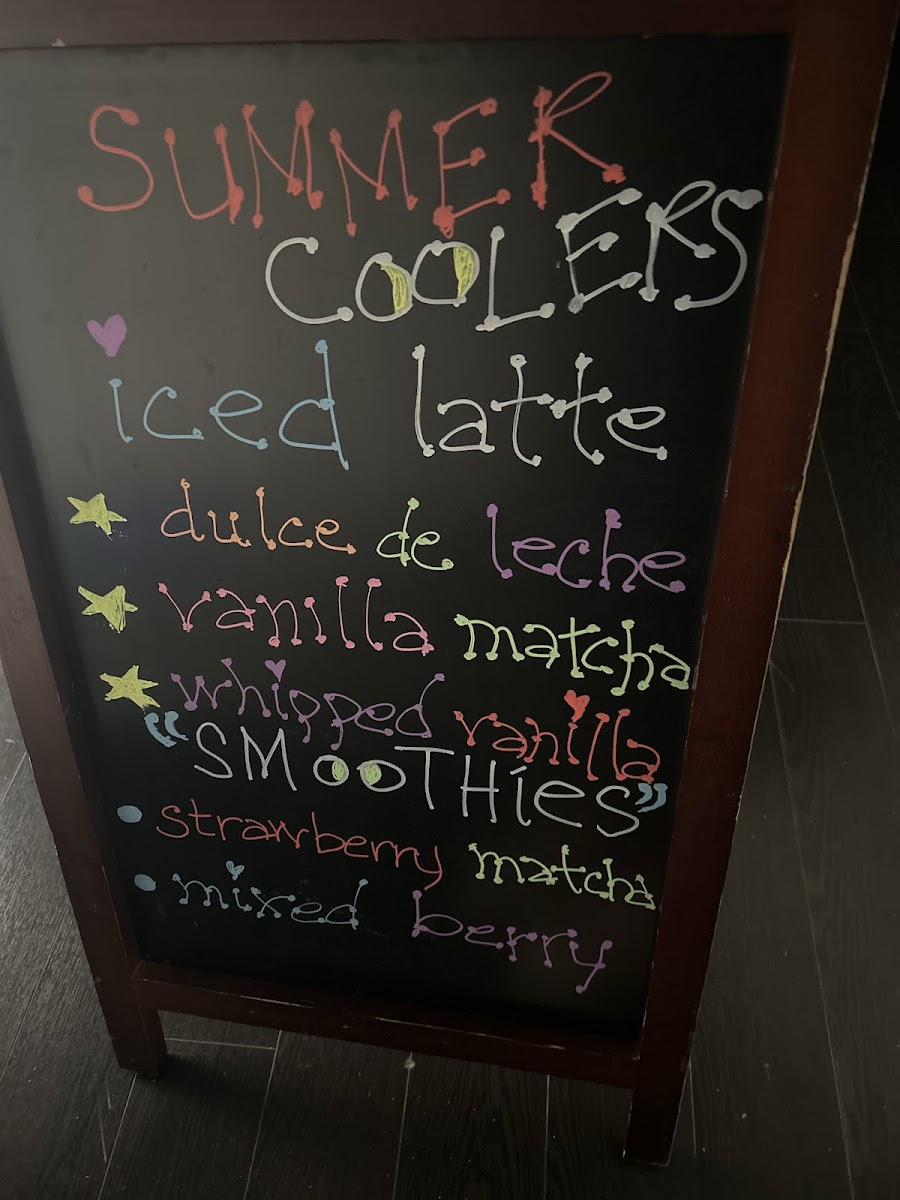 SUMMER
COOLERS
iced latte
dulce de leche
vanilla matcha
whipped vanilla
"SMOOTHíes"
strawberry matcha
mixed berry